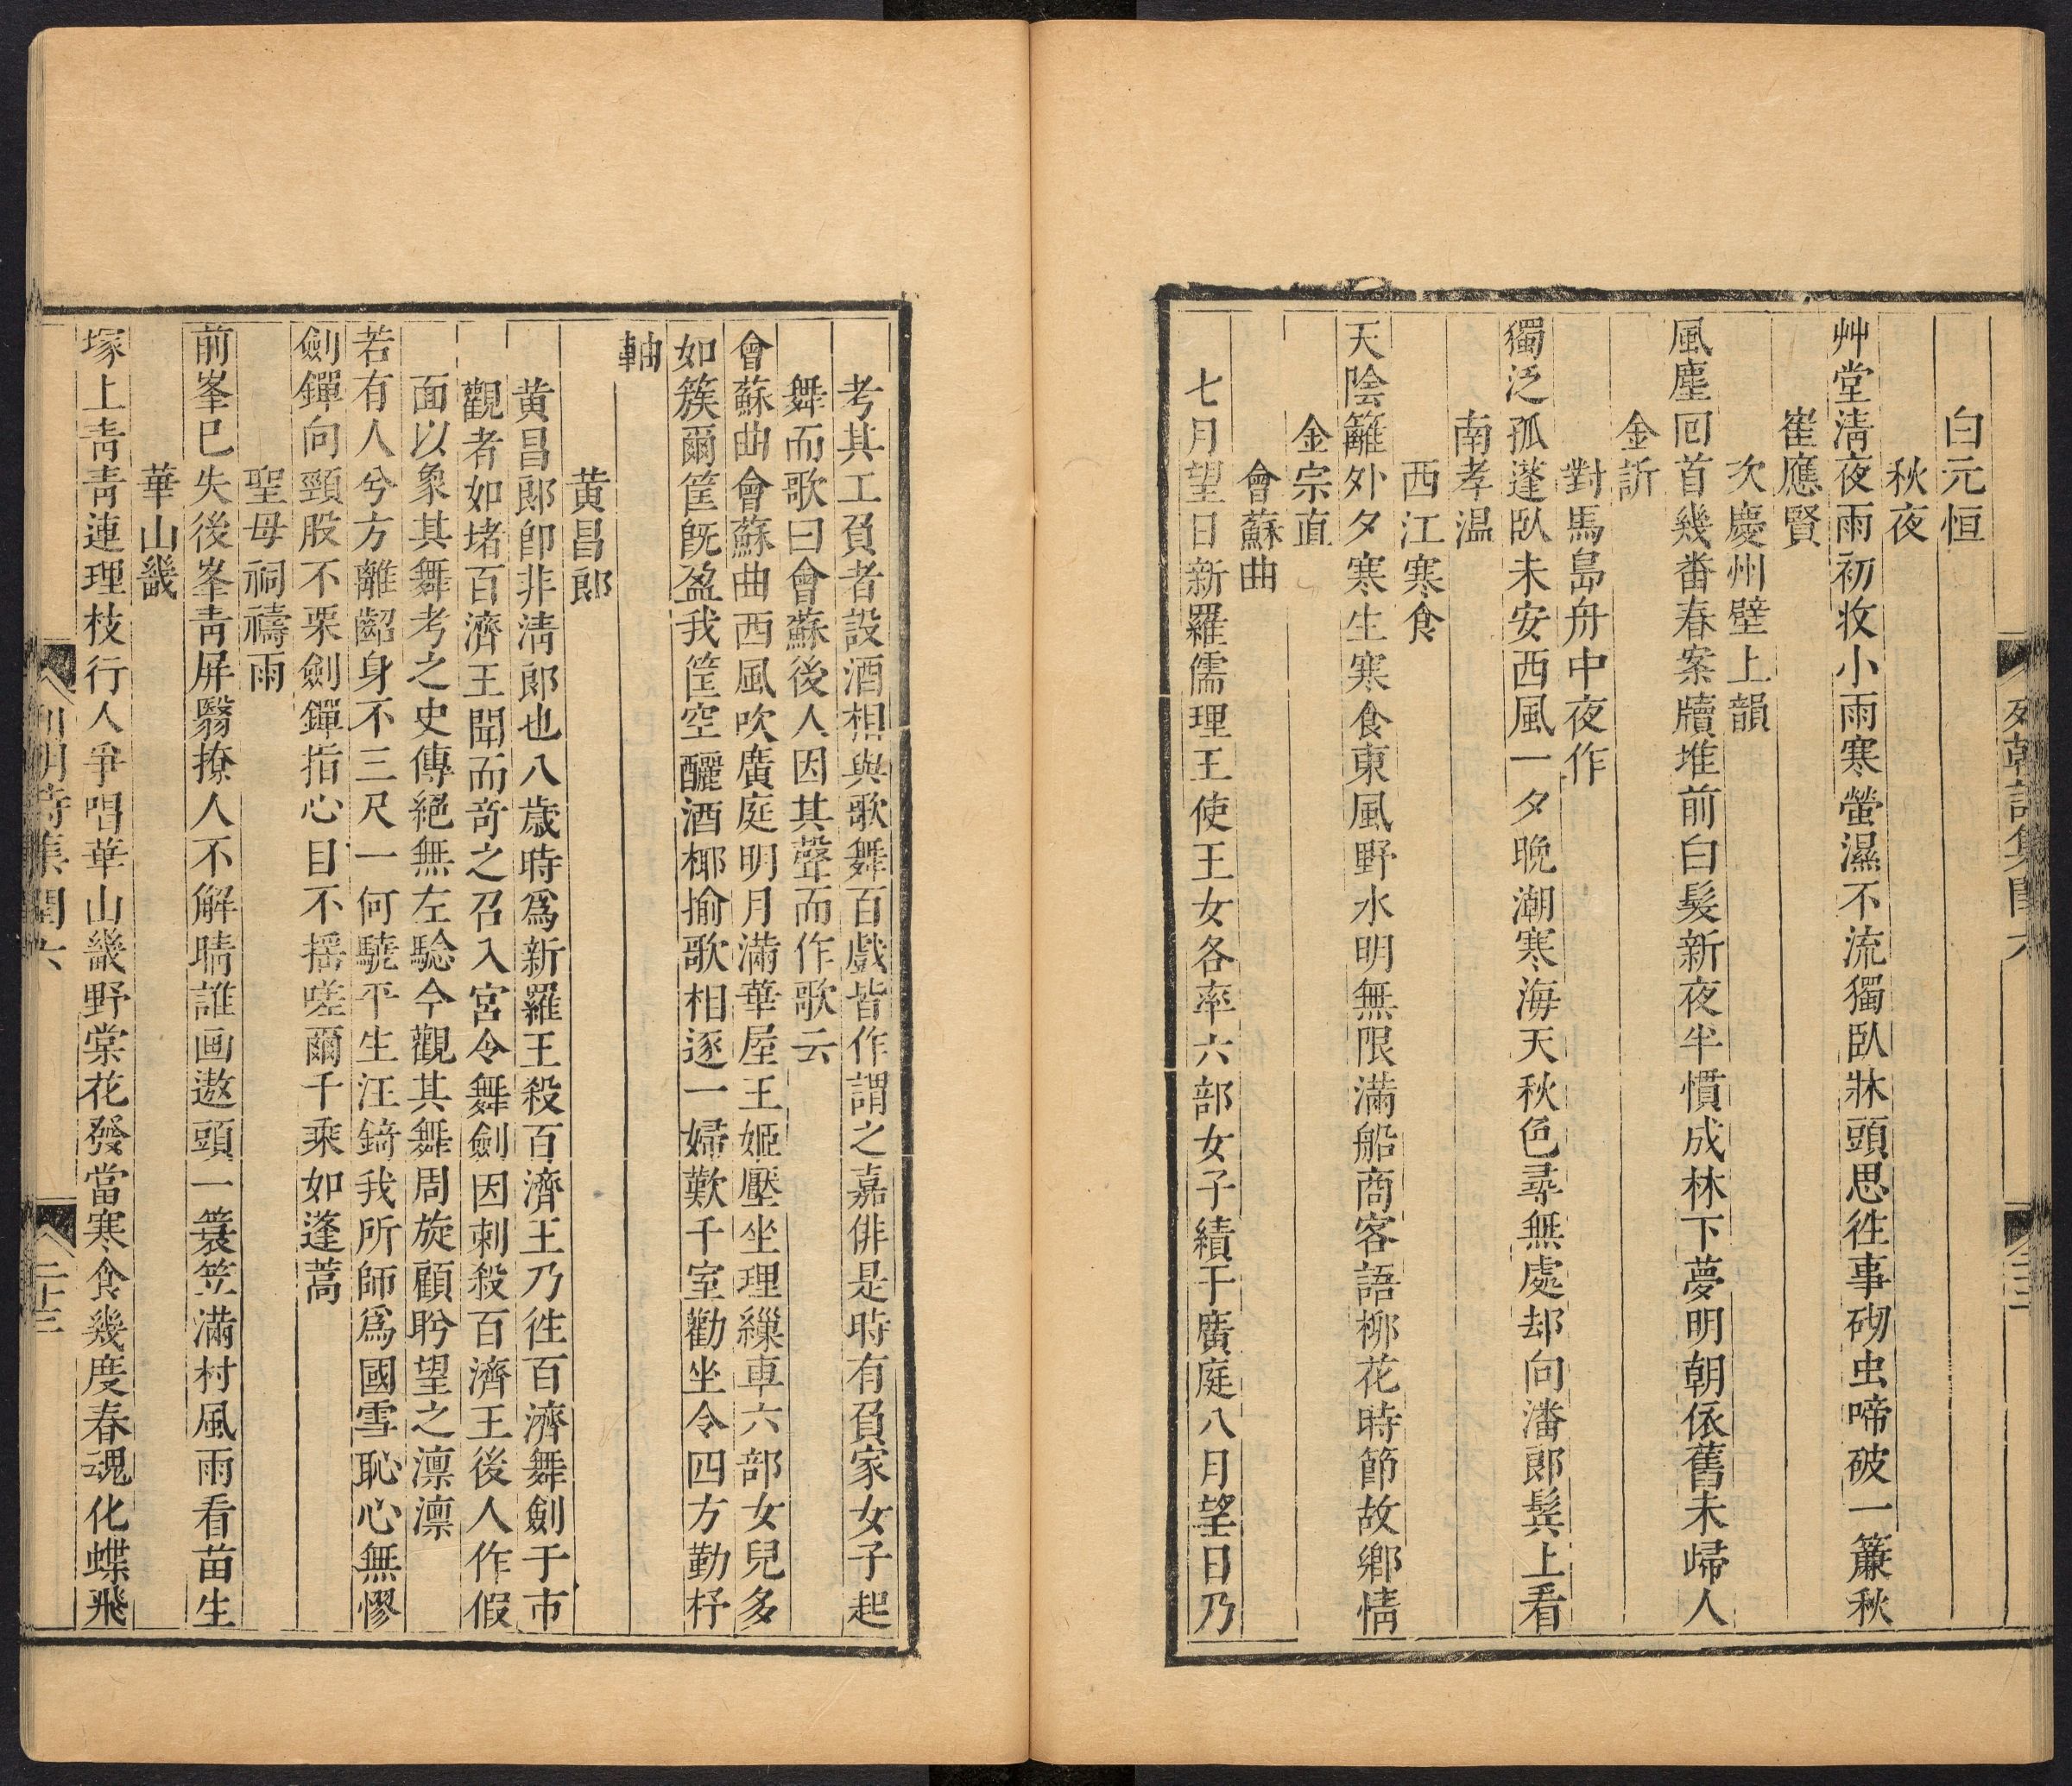 白元恒
秋夜
艸堂淸夜雨初收小雨寒螢濕不流獨臥牀頭思徃事砌虫啼破一簾秋
崔應賢
次慶州壁上韻
風塵回首幾畨春案牘堆前白髮新夜半慣成林下夢明朝依舊未歸人
金訢
對馬島舟中夜作
獨泛孤蓬臥未安西風一夕晚潮寒海天秋色尋無處却向潘郎鬂上看
南孝温
西江寒食
天陰籬外夕寒生寒食東風野水明無限滿船商客語栁花時節故鄉情
金宗直
會蘇曲
七月望日新羅儒理王使王女各率六部女子績于廣庭八月望日乃
考其工負者設酒相與歌舞百戲皆作謂之嘉俳是時有負家女子起
舞而歌曰會蘇後人因其聲而作歌云
會蘇曲會蘇曲西風吹廣庭明月滿華屋王姬壓坐理繅車六部女兒多
如簇爾筐旣盈我筐空釃酒揶揄歌相逐一婦歎千室勸坐令四方勤杼
軸
黄昌郎
黄昌郎卽非淸郎也八歲時爲新羅王殺百濟王乃徃百濟舞劍于市
觀者如堵百濟王聞而奇之召入宮令舞劍因刺殺百濟王後人作假
面以象其舞考之史傳絕無左驗今觀其舞周旋顧盻望之凛凛
若有人兮方離齠身不三尺一何驍平生汪錡我所師爲國雪恥心無憀
劍鐔向頸股不栗劍鐔指心目不搖嗟爾千乘如蓬蒿
聖母祠禱雨
前峯已失後峯靑屏翳撩人不解晴誰画遨頭一簑笠滿村風雨看苗生
華山畿
塚上靑靑連理枝行人爭唱華山畿野棠花發當寒食幾度春魂化蝶飛
列朝詩集閏六
二十三